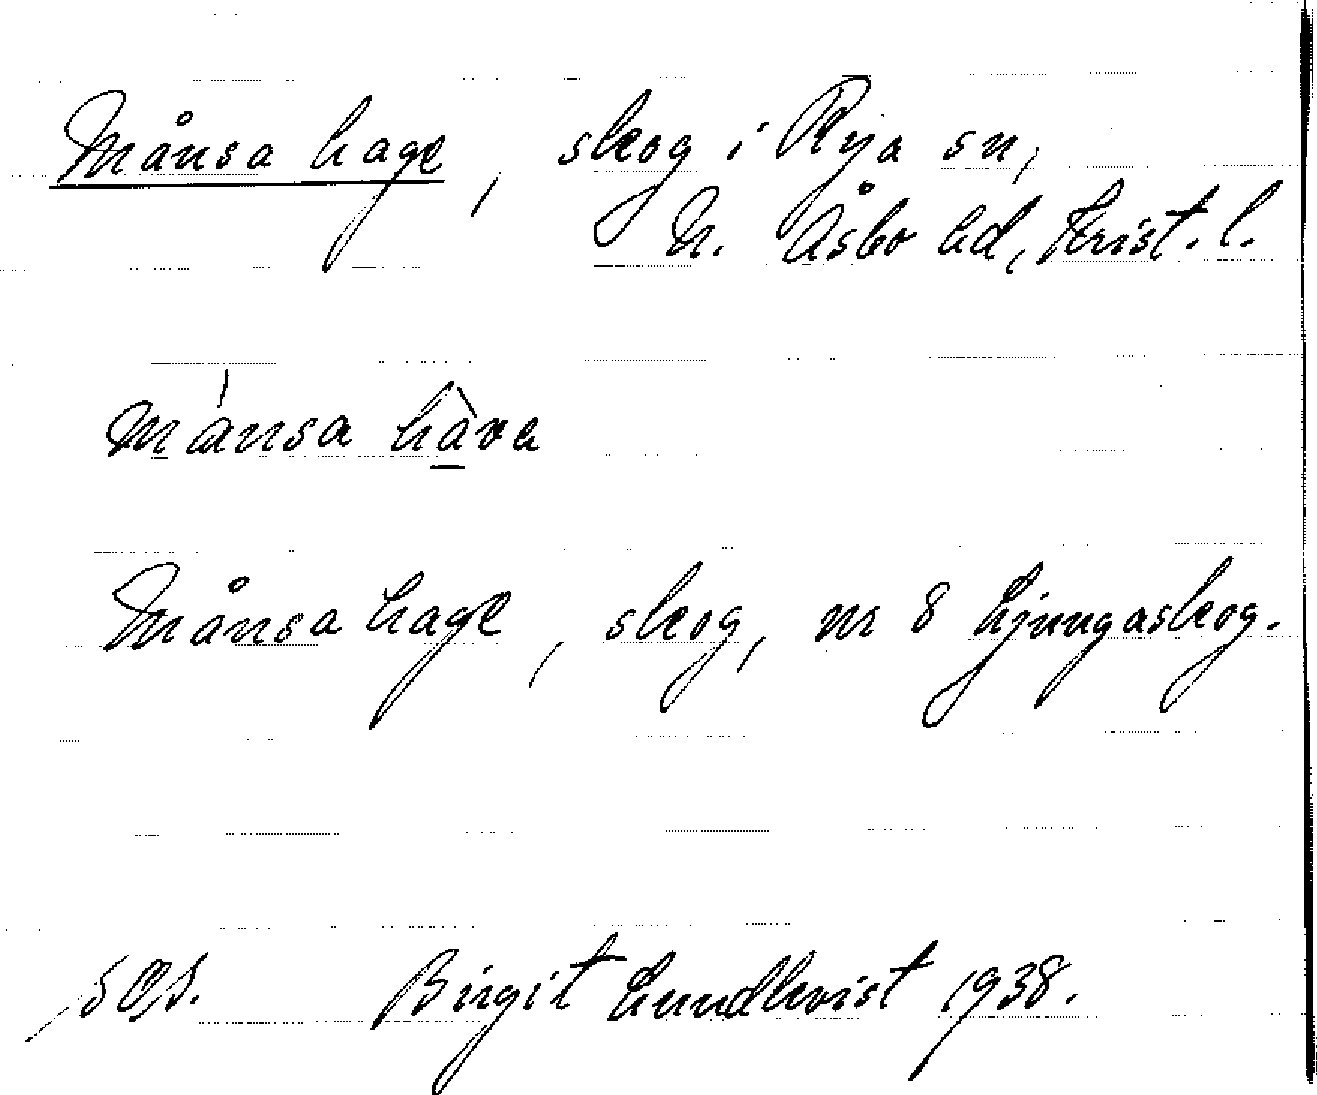 Månsa hage, skog i Rya sn,
N. Åsbo hd, Krist. l.
månsa hava
Månsa hage, skog, nr 8 Ljungaskog.
SOS. Birgit Lundkvist 1938.